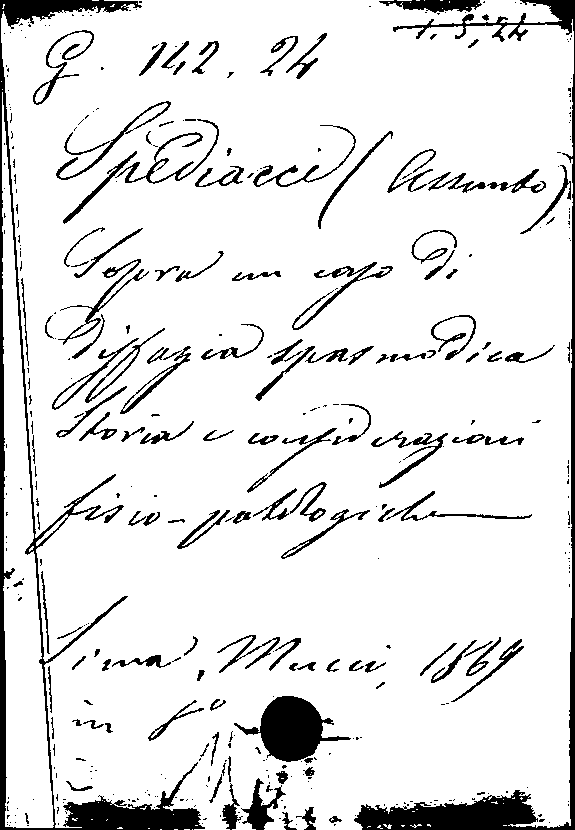 1. 5, 24
G. 142. 24
Spediacci (Assunto),
Sopra un caso di
Disfagia spasmodica
Storia e considerazioni
fisio-patologiche
Siena, Mucci, 1869
in 8º